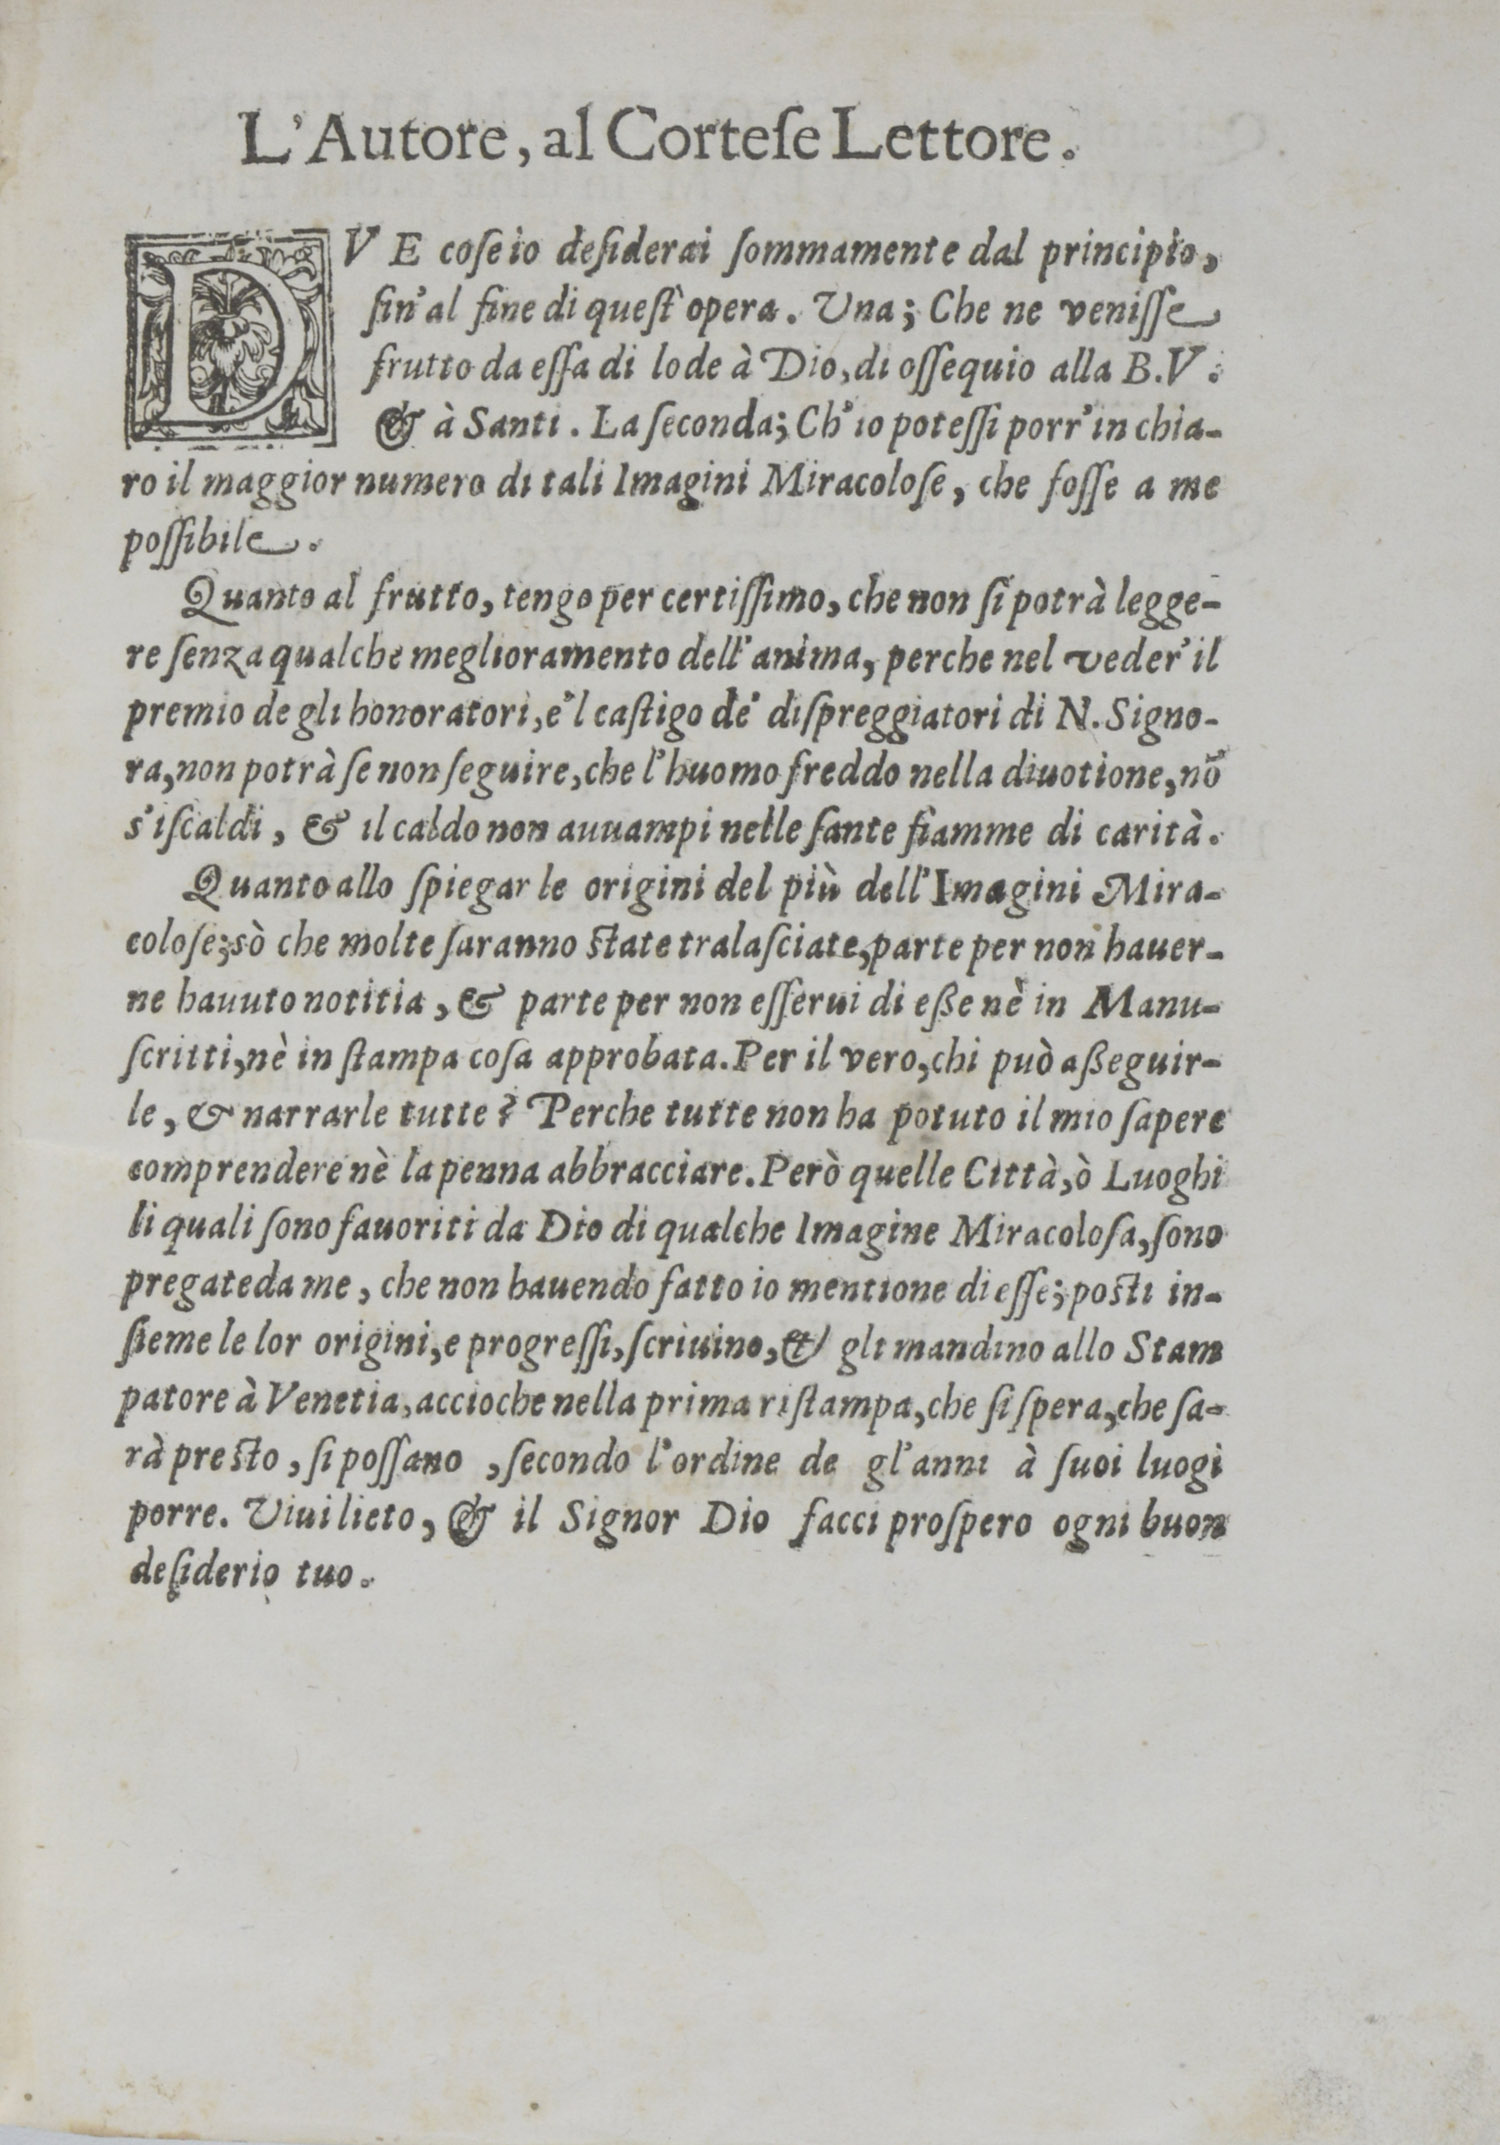 L'Autore, al Corteſe Lettore.
DVE coſe io deſiderai ſommamente dal principio,
ſin'al fine di queſt'opera. Una; Che ne veniſſe
frutto da eſſa di lode à Dio, di oſſequio alla B.V.
& à Santi. La ſeconda; Ch'io poteſſi porr'in chia-
ro il maggior numero di tali Imagini Miracoloſe, che foſſe a me
poſſibile.
Quanto al frutto, tengo per certiſſimo, che non ſi potrà legge-
re ſenza qualche meglioramento dell'anima, perche nel veder'il
premio de gli honoratori, e'l caſtigo de' diſpreggiatori di N. Signo-
ra, non potrà ſe non ſeguire, che l'huomo freddo nella diuotione, nõ
s'iſcaldi, & il caldo non auuampi nelle ſante fiamme di carità.
Quanto allo ſpiegar le origini del più dell'Imagini Mira-
coloſe; sò che molte ſaranno ſtate tralaſciate, parte per non hauer-
ne hauuto notitia, & parte per non eſſerui di eße nè in Manu-
ſcritti, nè in ſtampa coſa approbata. Per il vero, chi può aßeguir-
le, & narrarle tutte? Perche tutte non ha potuto il mio ſapere
comprendere nè la penna abbracciare. Però quelle Città, ò Luoghi
li quali ſono fauoriti da Dio di qualche Imagine Miracoloſa, ſono
pregate da me, che non hauendo fatto io mentione di eſſe; poſti in-
ſieme le lor origini, e progreſſi, ſcriuino, & gli mandino allo Stam
patore à Venetia, accioche nella prima riſtampa, che ſi ſpera, che ſa-
rà preſto, ſi poſſano, ſecondo l'ordine de gl'anni à ſuoi luogi
porre. Viui lieto, & il Signor Dio facci proſpero ogni buon
deſiderio tuo.